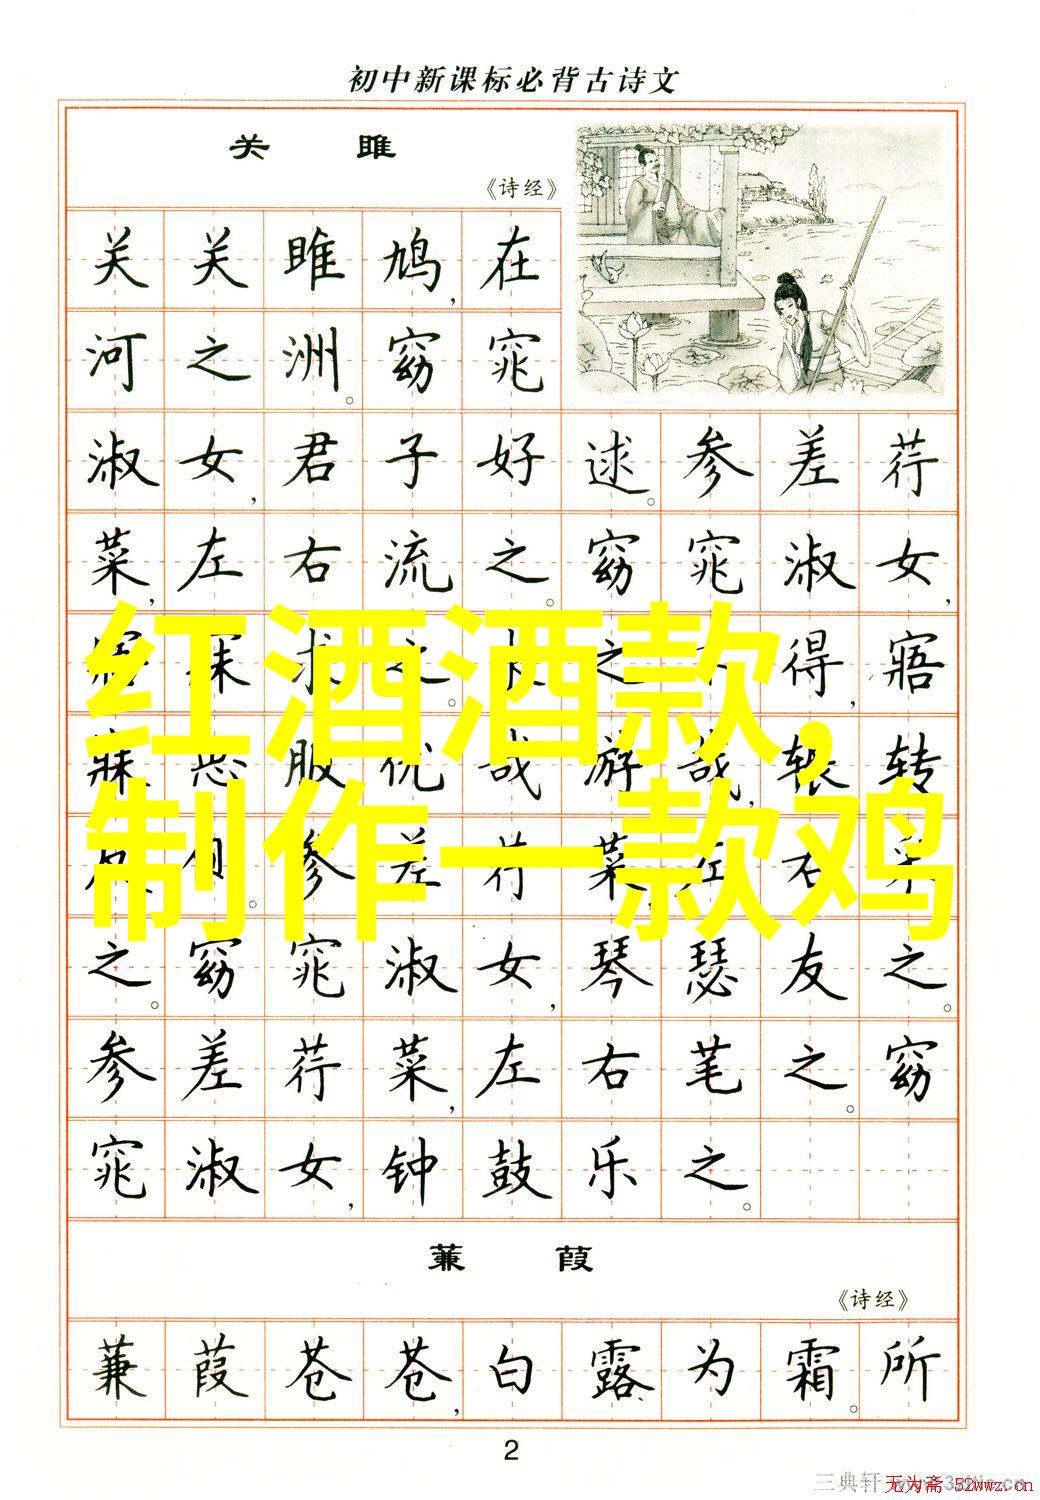 初中新课标必背古诗文
关 雎
《诗经》
关关雎鸠,在
河之洲。窈窕
淑女,君子好逑。参差荇
菜,左右流之。窈窕淑女,
求之。之得,寤
寐服哉游哉,辗转
参差荇菜,左右采
之。窈窕淑女,琴瑟友之。
参差荇菜,左右芼之。窈
窕淑女,钟鼓乐之。
红酒酒款,
制作一款鸡
蒹 葭
《诗经》
蒹葭苍苍,白露为霜。所
2
三典轩
无为斋 52wwz.cn